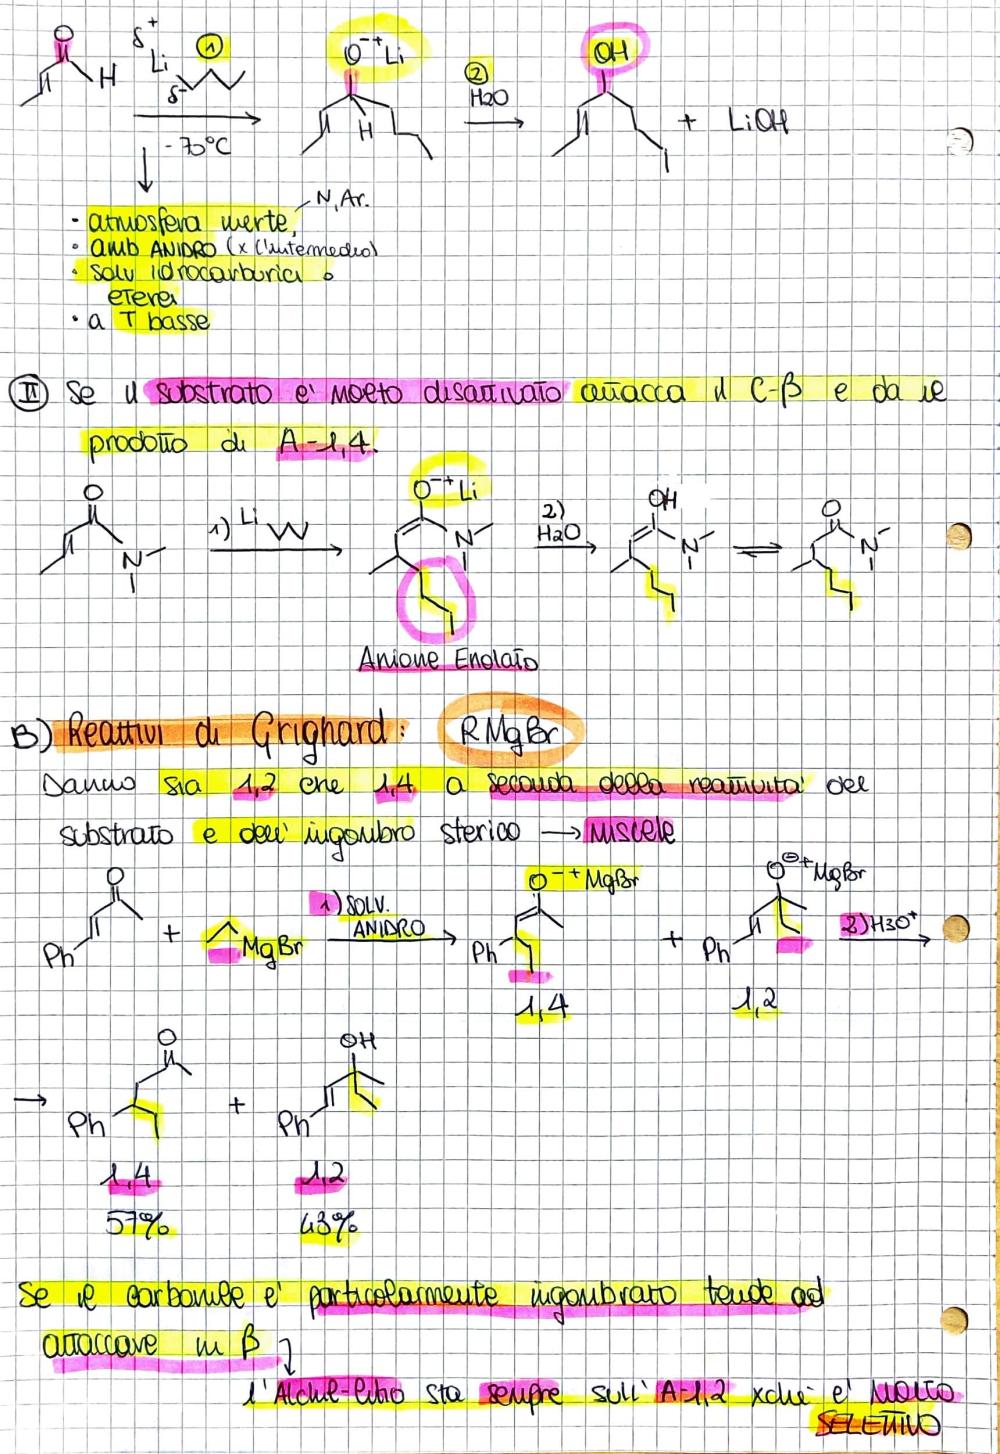 O
H
δ+
Li
δ-
1
-70°C
O-+Li
H
2
H2O
OH
+ LiOH
N, Ar.
· atmosfera inerte,
· amb ANIDRO (x l'intermedio)
· solv idrocarburici o
eterei
· a T basse
II Se il substrato e' molto disattivato attacca il C-β e da il
prodotto di A-1,4.
O
N
1) Li
O-+Li
N
2)
H2O
OH
N
O
N
Anione Enolato
B) Reattivi di Grighard: RMgBr
Danno sia 1,2 che 1,4 a seconda della reattivita' del
substrato e dell' ingombro sterico → miscele
O
Ph
+
MgBr
1) SOLV.
ANIDRO
O-+MgBr
Ph
1,4
+
O⊖+MgBr
Ph
1,2
2) H3O+
→
O
Ph
+
OH
Ph
1,4
1,2
57%
43%
Se il carbonile e' particolarmente ingombrato tende ad
attaccare in β
l'Alchil-litio sta sempre sull' A-1,2 xche' e' MOLTO
SELETTIVO